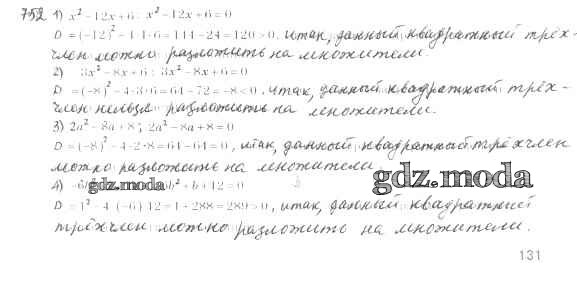 752. 1) x² - 12x + 6; x² - 12x + 6 = 0
D = (-12)² - 4·1·6 = 144 - 24 = 120 > 0, итак, данный квадратный трёх-
член можно разложить на множители.
2) 3x² - 8x + 6; 3x² - 8x + 6 = 0
D = (-8)² - 4·3·6 = 64 - 72 = -8 < 0, итак, данный квадратный трёх-
член нельзя разложить на множители.
3) 2a² - 8a + 8; 2a² - 8a + 8 = 0
D = (-8)² - 4·2·8 = 64 - 64 = 0, итак, данный квадратный трёхчлен
можно разложить на множители.
4) -6b² + b + 12 = 0
gdz.moda
gdz.moda
D = 1² - 4·(-6)·12 = 1 + 288 = 289 > 0, итак, данный квадратный
трёхчлен можно разложить на множители.
131